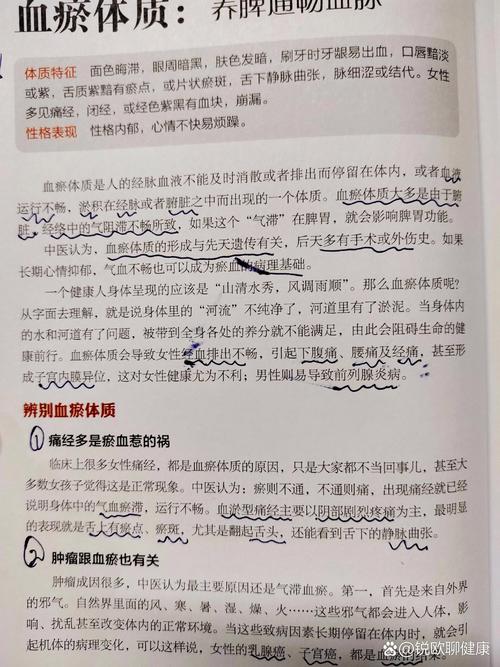 血瘀体质：养脾通畅血脉
体质特征 面色晦滞，眼周暗黑，肤色发暗，刷牙时牙龈易出血，口唇黯淡
或紫，舌质紫黯有瘀点，或片状瘀斑，舌下静脉曲张，脉细涩或结代。女性
多见痛经，闭经，或经色紫黑有血块，崩漏。
性格表现 性格内郁，心情不快易烦躁。
血瘀体质是人的经脉血液不能及时消散或者排出而停留在体内，或者血液
运行不畅，淤积在经脉或者脏腑之中而出现的一个体质。血瘀体质大多是由于脏
脏、经络中的气阻滞不畅所致，如果这个“气滞”在脾胃，就会影响脾胃功能。
中医认为，血瘀体质的形成与先天遗传有关，后天多有手术或外伤史。如果
长期心情抑郁，气血不畅也可以成为瘀血的病理基础。
一个健康人身体呈现的应该是“山清水秀，风调雨顺”。那么血瘀体质呢？
从字面去理解，就是说身体里的“河流”不纯净了，河道里有了淤泥。当身体内
的水和河道有了问题，被带到全身各处的养分就不能满足，由此会阻碍生命的健
康前行。血瘀体质会导致女性经血排出不畅，引起下腹痛、腰痛及经痛，甚至形
成子宫内膜异位，这对女性健康尤为不利；男性则易导致前列腺炎病。
辨别血瘀体质
1 痛经多是瘀血惹的祸
临床上很多女性痛经，都是血瘀体质的原因，只是大家都不当回事儿，甚至大
多数女孩子觉得这是正常现象。中医认为：瘀则不通，不通则痛，出现痛经就已经
说明身体中的气血瘀滞，运行不畅。血淤型痛经主要以阴部剧烈疼痛为主，最明显
的表现就是舌上有瘀点、瘀斑，尤其是翻起舌头，还能看到舌下的静脉曲张。
2 肿瘤跟血瘀也有关
肿瘤成因很多，中医认为最主要原因还是气滞血瘀。第一，首先是来自外界
的邪气。自然界里面的风、寒、暑、湿、燥、火……这些邪气都会进入人体，影
响、扰乱甚至改变体内的正常环境。当这些致病因素长期停留在体内时，就会引
起机体的病理变化，可以这样说，女性的乳腺癌、子宫癌，都是
@锐欧聊健康